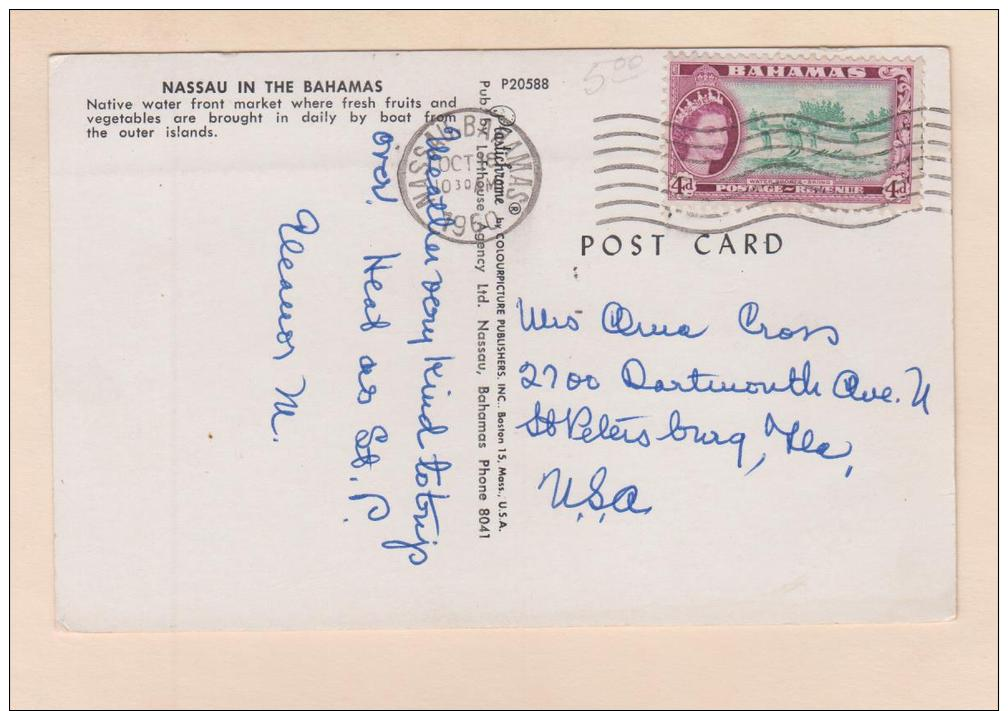 NASSAU IN THE BAHAMAS
Native water front market where fresh fruits and
vegetables are brought in daily by boat from
the outer islands.
Weather very kind to trip
over. Heat as St. P.
Eleanor M.
P20588
Plastichrome ® by COLOURPICTURE PUBLISHERS, INC., Boston 15, Mass., U.S.A.
Pub by Lofthouse Agency Ltd. Nassau, Bahamas Phone 8041
NASSAU BAHAMAS
OCT
10 30 AM
1960
5 00
BAHAMAS
WATER SPORTS - SKIING
4d POSTAGE ~ REVENUE 4d
POST CARD
Mrs Anna Cross
2700 Dartmouth Ave. N
St Petersburg, Fla,
U.S.A.